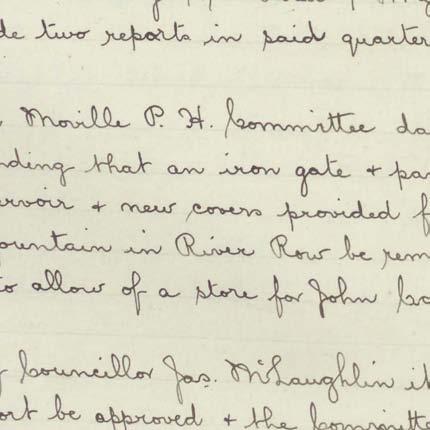 de two reports in said quarter
Moville P. H. Committee da
nding that an iron gate + pa
ervoir + new covers provided f
ountain in River Row be rem
to allow of a store for John Co
Councillor Jas. McLaughlin it
ort be approved + the Committe